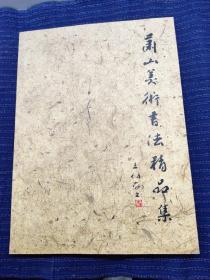 萧山美術書法精品集